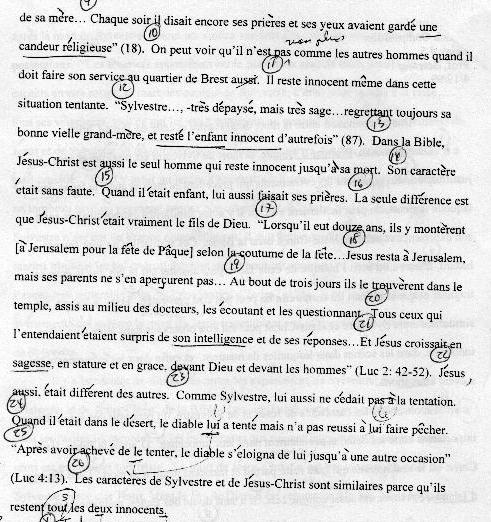 de sa mère... Chaque soir il disait encore ses prières et ses yeux avaient gardé une
10
candeur réligieuse" (18). On peut voir qu'il n'est pas comme les autres hommes quand il
non plus
11
doit faire son service au quartier de Brest aussi. Il reste innocent même dans cette
12
situation tentante. "Sylvestre..., -très dépaysé, mais très sage...regrettant toujours sa
13
bonne vielle grand-mère, et resté l'enfant innocent d'autrefois" (87). Dans la Bible,
14
Jésus-Christ est aussi le seul homme qui reste innocent jusqu'à sa mort. Son caractère
15
16
était sans faute. Quand il était enfant, lui aussi faisait ses prières. La seule différence est
17
que Jésus-Christ était vraiment le fils de Dieu. "Lorsqu'il eut douze ans, ils y montèrent
18
[à Jerusalem pour la fête de Pâque] selon la coutume de la fête...Jesus resta à Jerusalem,
19
mais ses parents ne s'en aperçurent pas... Au bout de trois jours ils le trouvèrent dans le
20
temple, assis au milieu des docteurs, les écoutant et les questionnant. Tous ceux qui
21
l'entendaient étaient surpris de son intelligence et de ses réponses...Et Jésus croissait en
22
sagesse, en stature et en grace, devant Dieu et devant les hommes" (Luc 2: 42-52). Jésus,
23
aussi, était différent des autres. Comme Sylvestre, lui aussi ne cédait pas à la tentation.
24
Quand il était dans le désert, le diable lui a tenté mais n'a pas reussi à lui faire pécher.
25
"Après avoir achevé de le tenter, le diable s'éloigna de lui jusqu'à une autre occasion"
26
(Luc 4:13). Les caractères de Sylvestre et de Jésus-Christ sont similaires parce qu'ils
restent tout les deux innocents.